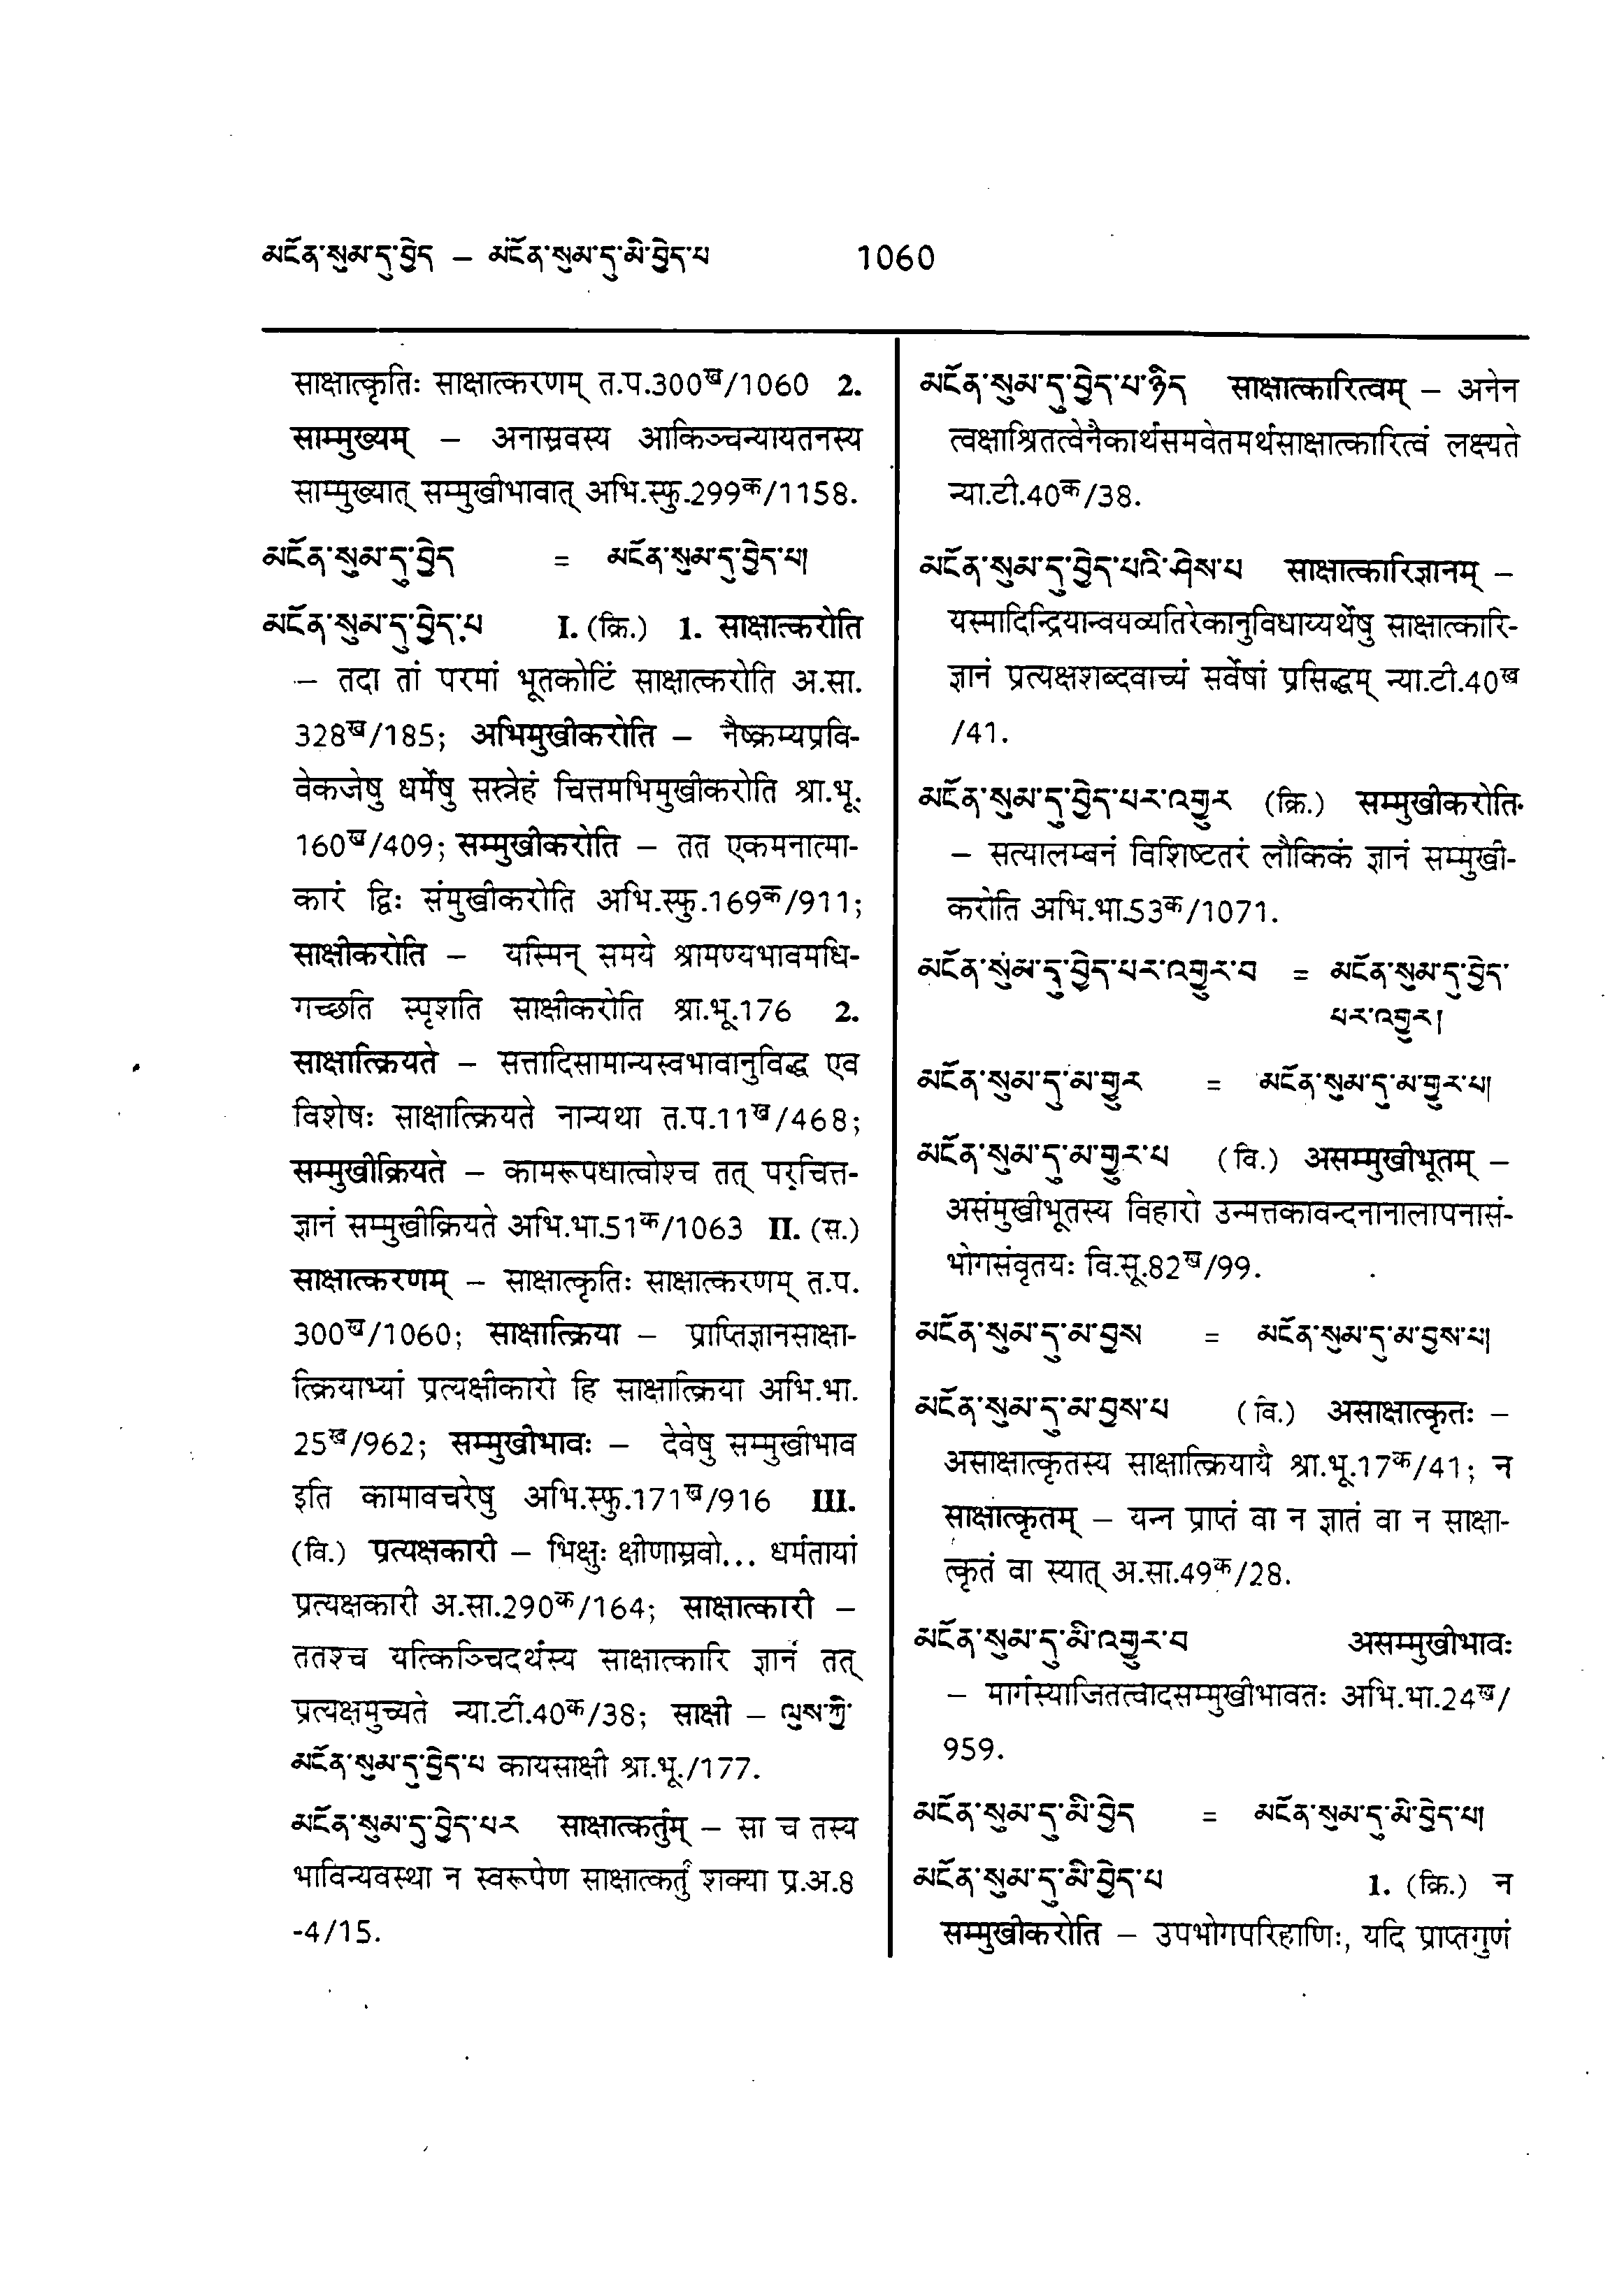 མངོན་སུམ་དུ་བྱེད – མངོན་སུམ་དུ་མི་བྱེད་པ 1060
साक्षात्कृतिः साक्षात्करणम् त.प.300ख/1060 2.
साम्मुख्यम् – अनास्रवस्य आकिञ्चन्यायतनस्य
साम्मुख्यात् सम्मुखीभावात् अभि.स्फु.299क/1158.
མངོན་སུམ་དུ་བྱེད = མངོན་སུམ་དུ་བྱེད་པ།
མངོན་སུམ་དུ་བྱེད་པ I. (क्रि.) 1. साक्षात्करोति
– तदा तां परमां भूतकोटिं साक्षात्करोति अ.सा.
328ख/185; अभिमुखीकरोति – नैष्क्रम्यप्रवि-
वेकजेषु धर्मेषु सस्नेहं चित्तमभिमुखीकरोति श्रा.भू.
160ख/409; सम्मुखीकरोति – तत एकमनात्मा-
कारं द्विः संमुखीकरोति अभि.स्फु.169क/911;
साक्षीकरोति – यस्मिन् समये श्रामण्यभावमधि-
गच्छति स्पृशति साक्षीकरोति श्रा.भू.176 2.
साक्षात्क्रियते – सत्तादिसामान्यस्वभावानुविद्ध एव
विशेषः साक्षात्क्रियते नान्यथा त.प.11ख/468;
सम्मुखीक्रियते – कामरूपधात्वोश्च तत् परचित्त-
ज्ञानं सम्मुखीक्रियते अभि.भा.51क/1063 II. (स.)
साक्षात्करणम् – साक्षात्कृतिः साक्षात्करणम् त.प.
300ख/1060; साक्षात्क्रिया – प्राप्तिज्ञानसाक्षा-
त्क्रियाभ्यां प्रत्यक्षीकारो हि साक्षात्क्रिया अभि.भा.
25ख/962; सम्मुखीभावः – देवेषु सम्मुखीभाव
इति कामावचरेषु अभि.स्फु.171ख/916 III.
(वि.) प्रत्यक्षकारी – भिक्षुः क्षीणास्रवो... धर्मतायां
प्रत्यक्षकारी अ.सा.290क/164; साक्षात्कारी –
ततश्च यत्किञ्चिदर्थस्य साक्षात्कारि ज्ञानं तत्
प्रत्यक्षमुच्यते न्या.टी.40क/38; साक्षी – ལུས་ཀྱི་
མངོན་སུམ་དུ་བྱེད་པ कायसाक्षी श्रा.भू./177.
མངོན་སུམ་དུ་བྱེད་པར साक्षात्कर्तुम् – सा च तस्य
भाविन्यवस्था न स्वरूपेण साक्षात्कर्तुं शक्या प्र.अ.8
-4/15.
མངོན་སུམ་དུ་བྱེད་པ་ཉིད साक्षात्कारित्वम् – अनेन
त्वक्षाश्रितत्वेनैकार्थसमवेतमर्थसाक्षात्कारित्वं लक्ष्यते
न्या.टी.40क/38.
མངོན་སུམ་དུ་བྱེད་པའི་ཤེས་པ साक्षात्कारिज्ञानम् –
यस्मादिन्द्रियान्वयव्यतिरेकानुविधाय्यर्थेषु साक्षात्कारि-
ज्ञानं प्रत्यक्षशब्दवाच्यं सर्वेषां प्रसिद्धम् न्या.टी.40ख
/41.
མངོན་སུམ་དུ་བྱེད་པར་འགྱུར (क्रि.) सम्मुखीकरोति
– सत्यालम्बनं विशिष्टतरं लौकिकं ज्ञानं सम्मुखी-
करोति अभि.भा.53क/1071.
མངོན་སུམ་དུ་བྱེད་པར་འགྱུར་བ = མངོན་སུམ་དུ་བྱེད་
པར་འགྱུར།
མངོན་སུམ་དུ་མ་གྱུར = མངོན་སུམ་དུ་མ་གྱུར་པ།
མངོན་སུམ་དུ་མ་གྱུར་པ (वि.) असम्मुखीभूतम् –
असंमुखीभूतस्य विहारो उन्मत्तकावन्दनानालापनासं-
भोगसंवृतयः वि.सू.82ख/99.
མངོན་སུམ་དུ་མ་བྱས = མངོན་སུམ་དུ་མ་བྱས་པ།
མངོན་སུམ་དུ་མ་བྱས་པ (वि.) असाक्षात्कृतः –
असाक्षात्कृतस्य साक्षात्क्रियायै श्रा.भू.17क/41; न
साक्षात्कृतम् – यन्न प्राप्तं वा न ज्ञातं वा न साक्षा-
त्कृतं वा स्यात् अ.सा.49क/28.
མངོན་སུམ་དུ་མི་འགྱུར་བ असम्मुखीभावः
– मार्गस्याजितत्वादसम्मुखीभावतः अभि.भा.24ख/
959.
མངོན་སུམ་དུ་མི་བྱེད = མངོན་སུམ་དུ་མི་བྱེད་པ།
མངོན་སུམ་དུ་མི་བྱེད་པ 1. (क्रि.) न
सम्मुखीकरोति – उपभोगपरिहाणिः, यदि प्राप्तगुणं